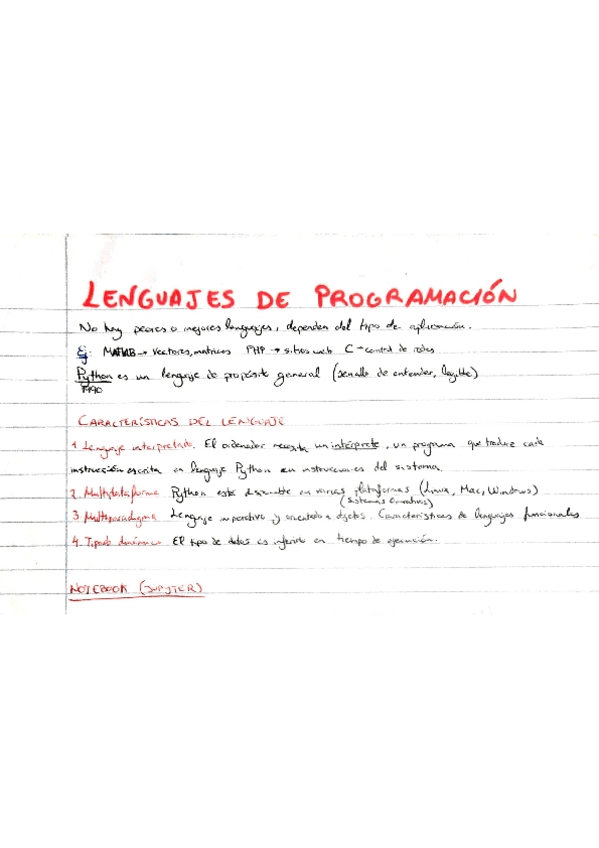 LENGUAJES DE PROGRAMACIÓN
No hay peores o mejores lenguajes, dependen del tipo de aplicación.
Ej. MATLAB → vectores, matrices PHP → sitios web C → control de redes
Python es un lenguaje de propósito general (sencillo de entender, legible)
1990
CARACTERÍSTICAS DEL LENGUAJE
1. Lenguaje interpretado. El ordenador necesita un intérprete, un programa que traduce cada
instrucción escrita en lenguaje Python en instrucciones del sistema.
2. Multiplataforma Python está disponible en varias plataformas (Linux, Mac, Windows)
(sistemas operativos)
3. Multiparadigma Lenguaje imperativo y orientado a objetos. Características de lenguajes funcionales
4. Tipado dinámico El tipo de datos es inferido en tiempo de ejecución.
NOTEBOOK (JUPYTER)